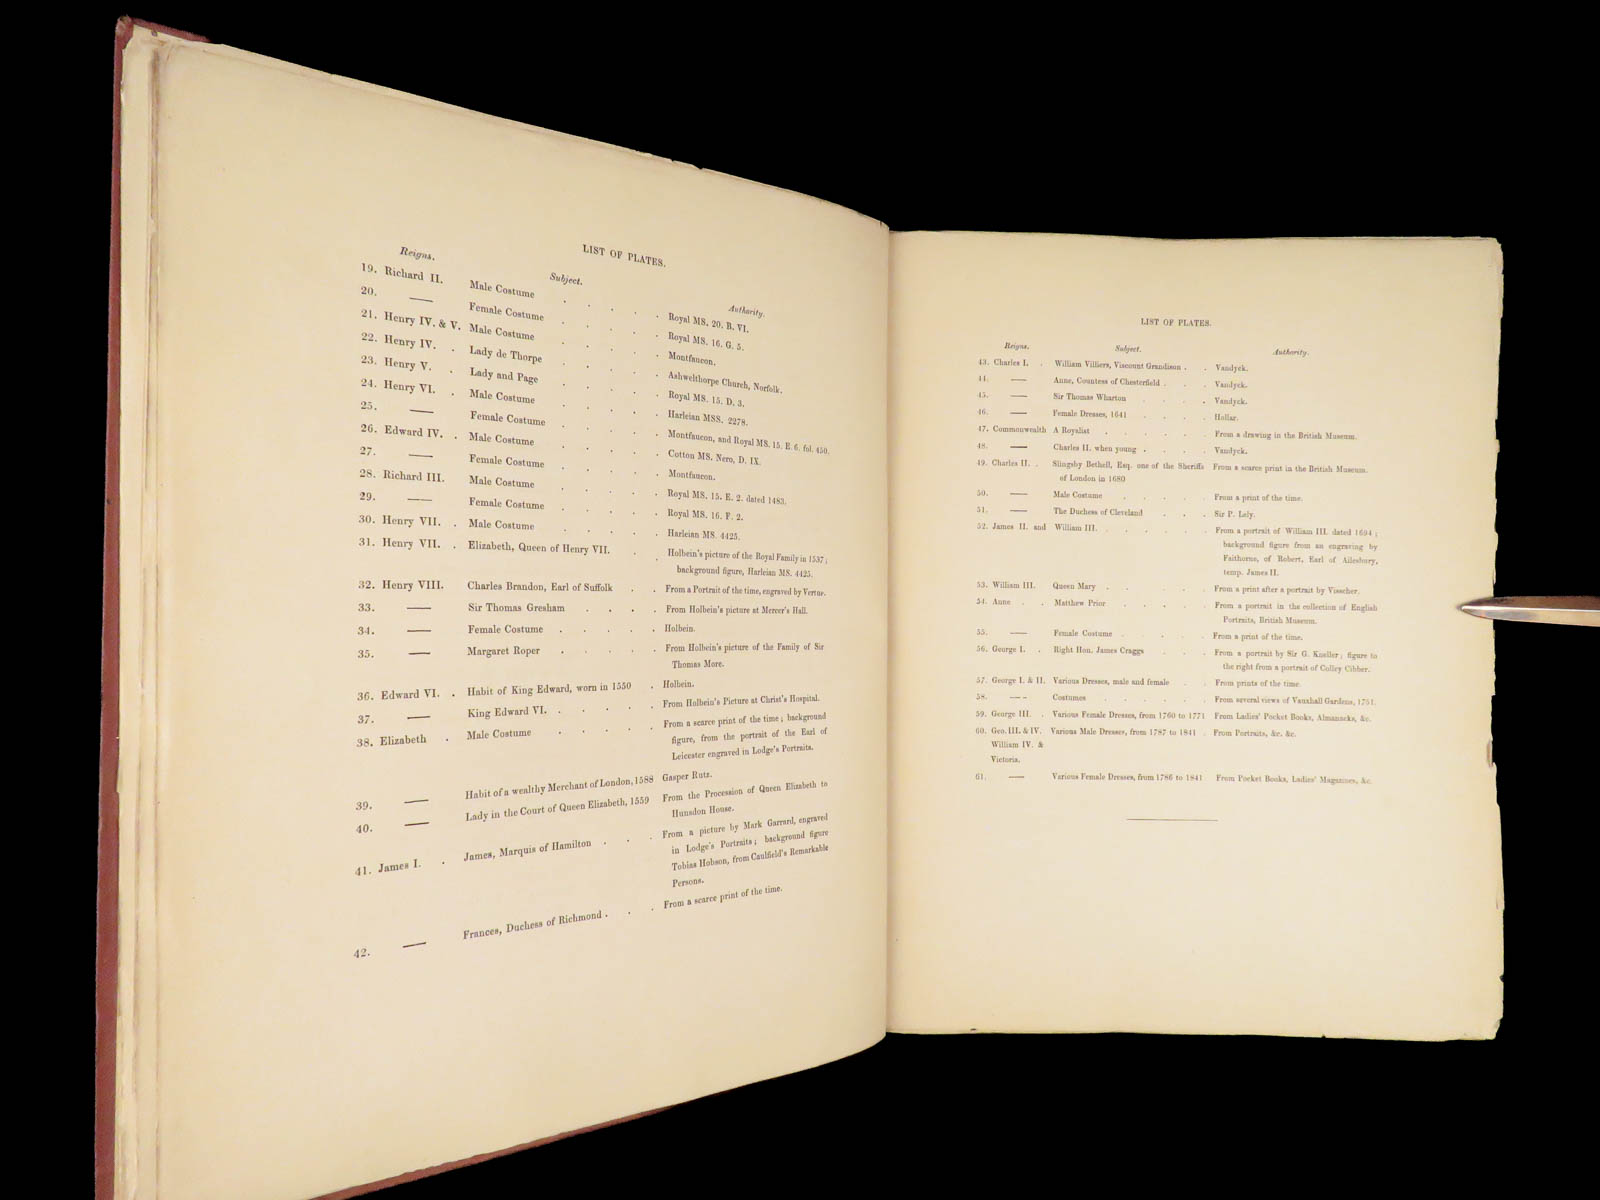 LIST OF PLATES.
Reigns. Subject. Authority.
19. Richard II. Male Costume . . . . . Royal MS. 20. B. VI.
20. — Female Costume . . . . . Royal MS. 16. G. 5.
21. Henry IV. & V. Male Costume . . . . . Montfaucon.
22. Henry IV. . Lady de Thorpe . . . . . Ashwelthorpe Church, Norfolk.
23. Henry V. . Lady and Page . . . . . Royal MS. 15. D. 3.
24. Henry VI. . Male Costume . . . . . Harleian MSS. 2278.
25. — Female Costume . . . . . Montfaucon, and Royal MS. 15. E. 6. fol. 450.
26. Edward IV. . Male Costume . . . . . Cotton MS. Nero, D. IX.
27. — Female Costume . . . . . Montfaucon.
28. Richard III. Male Costume . . . . . Royal MS. 15. E. 2. dated 1483.
29. — Female Costume . . . . . Royal MS. 16. F. 2.
30. Henry VII. . Male Costume . . . . . Harleian MS. 4425.
31. Henry VII. . Elizabeth, Queen of Henry VII. . . Holbein's picture of the Royal Family in 1537;
background figure, Harleian MS. 4425.
32. Henry VIII. Charles Brandon, Earl of Suffolk . . From a Portrait of the time, engraved by Vertue.
33. — Sir Thomas Gresham . . . . From Holbein's picture at Mercer's Hall.
34. — Female Costume . . . . . Holbein.
35. — Margaret Roper . . . . . From Holbein's picture of the Family of Sir
Thomas More.
36. Edward VI. . Habit of King Edward, worn in 1550 . Holbein.
37. — King Edward VI. . . . . . From Holbein's Picture at Christ's Hospital.
38. Elizabeth . Male Costume . . . . . From a scarce print of the time; background
figure, from the portrait of the Earl of
Leicester engraved in Lodge's Portraits.
39. — Habit of a wealthy Merchant of London, 1588 Gasper Rutz.
40. — Lady in the Court of Queen Elizabeth, 1559 From the Procession of Queen Elizabeth to
Hunsdon House.
41. James I. . James, Marquis of Hamilton . . . From a picture by Mark Garrard, engraved
in Lodge's Portraits; background figure
Tobias Hobson, from Caulfield's Remarkable
Persons.
42. — Frances, Duchess of Richmond . . . From a scarce print of the time.
LIST OF PLATES.
Reigns. Subject. Authority.
43. Charles I. . William Villiers, Viscount Grandison . . Vandyck.
44. — Anne, Countess of Chesterfield . . . Vandyck.
45. — Sir Thomas Wharton . . . . Vandyck.
46. — Female Dresses, 1641 . . . . Hollar.
47. Commonwealth A Royalist . . . . . . From a drawing in the British Museum.
48. — Charles II. when young . . . . Vandyck.
49. Charles II. . Slingsby Bethell, Esq. one of the Sheriffs From a scarce print in the British Museum.
of London in 1680
50. — Male Costume . . . . . From a print of the time.
51. — The Duchess of Cleveland . . . Sir P. Lely.
52. James II. and William III. . . . . . . From a portrait of William III. dated 1694;
background figure from an engraving by
Faithorne, of Robert, Earl of Ailesbury,
temp. James II.
53. William III. Queen Mary . . . . . From a print after a portrait by Visscher.
54. Anne . . Matthew Prior . . . . . From a portrait in the collection of English
Portraits, British Museum.
55. — Female Costume . . . . . From a print of the time.
56. George I. . Right Hon. James Craggs . . . From a portrait by Sir G. Kneller; figure to
the right from a portrait of Colley Cibber.
57. George I. & II. Various Dresses, male and female . . From prints of the time.
58. — Costumes . . . . . From several views of Vauxhall Gardens, 1751.
59. George III. . Various Female Dresses, from 1760 to 1771 From Ladies' Pocket Books, Almanacks, &c.
60. Geo. III. & IV. Various Male Dresses, from 1787 to 1841 . From Portraits, &c. &c.
William IV. &
Victoria.
61. — Various Female Dresses, from 1786 to 1841 From Pocket Books, Ladies' Magazines, &c.